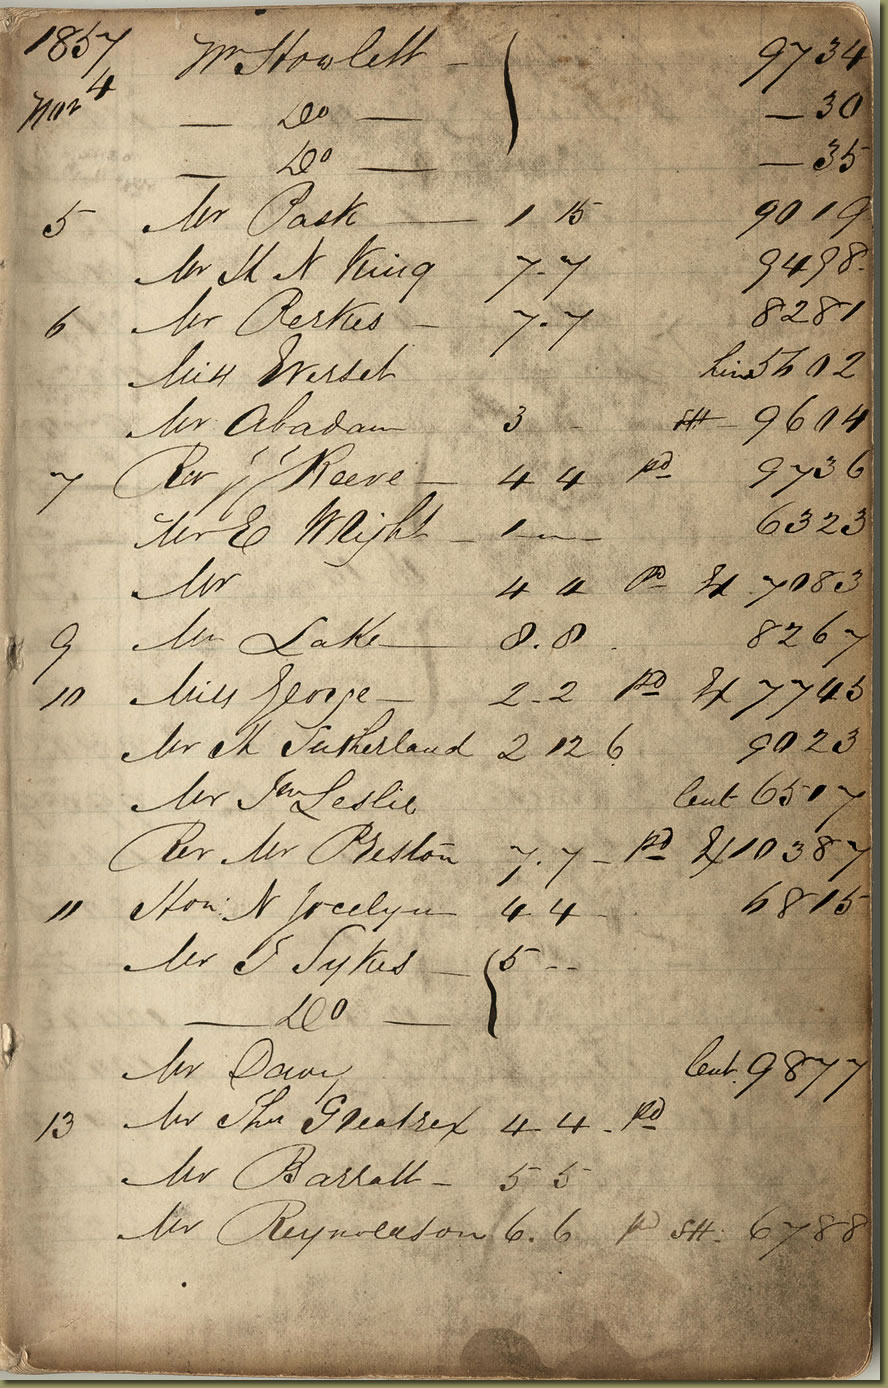 1857 Wm Howlett — 9734
Nov 4 — Do — — 30
— Do — — 35
5 Mr Pask — 1 15 9019
Mr H N King 7-7 9498
6 Mr Perkes — 7.7 8281
Miss Everset 5602
Mr Abadam 3 - SH - 9604
7 Rev JJ Reeve — 4 4 pd 9736
Mr E Wright — 1 — — 6323
Mr 4 4 pd 7083
9 Mr Lake — 8.8. 8267
10 Miss George — 2-2 pd 7745
Mr H Sutherland 2 12 6 9023
Mr Jno Leslie lent 6517
Rev Mr Preston 7.7 — pd 10387
11 Hon: N Jocelyn 4 4 - 6815
Mr T Sykes — 5 - -
— Do —
Mr Davy lent. 9877
13 Mr Thos Greatrex 4 4 - pd
Mr Barratt - 5 5
Mr Reynoldson 6. 6 pd SH. 6788